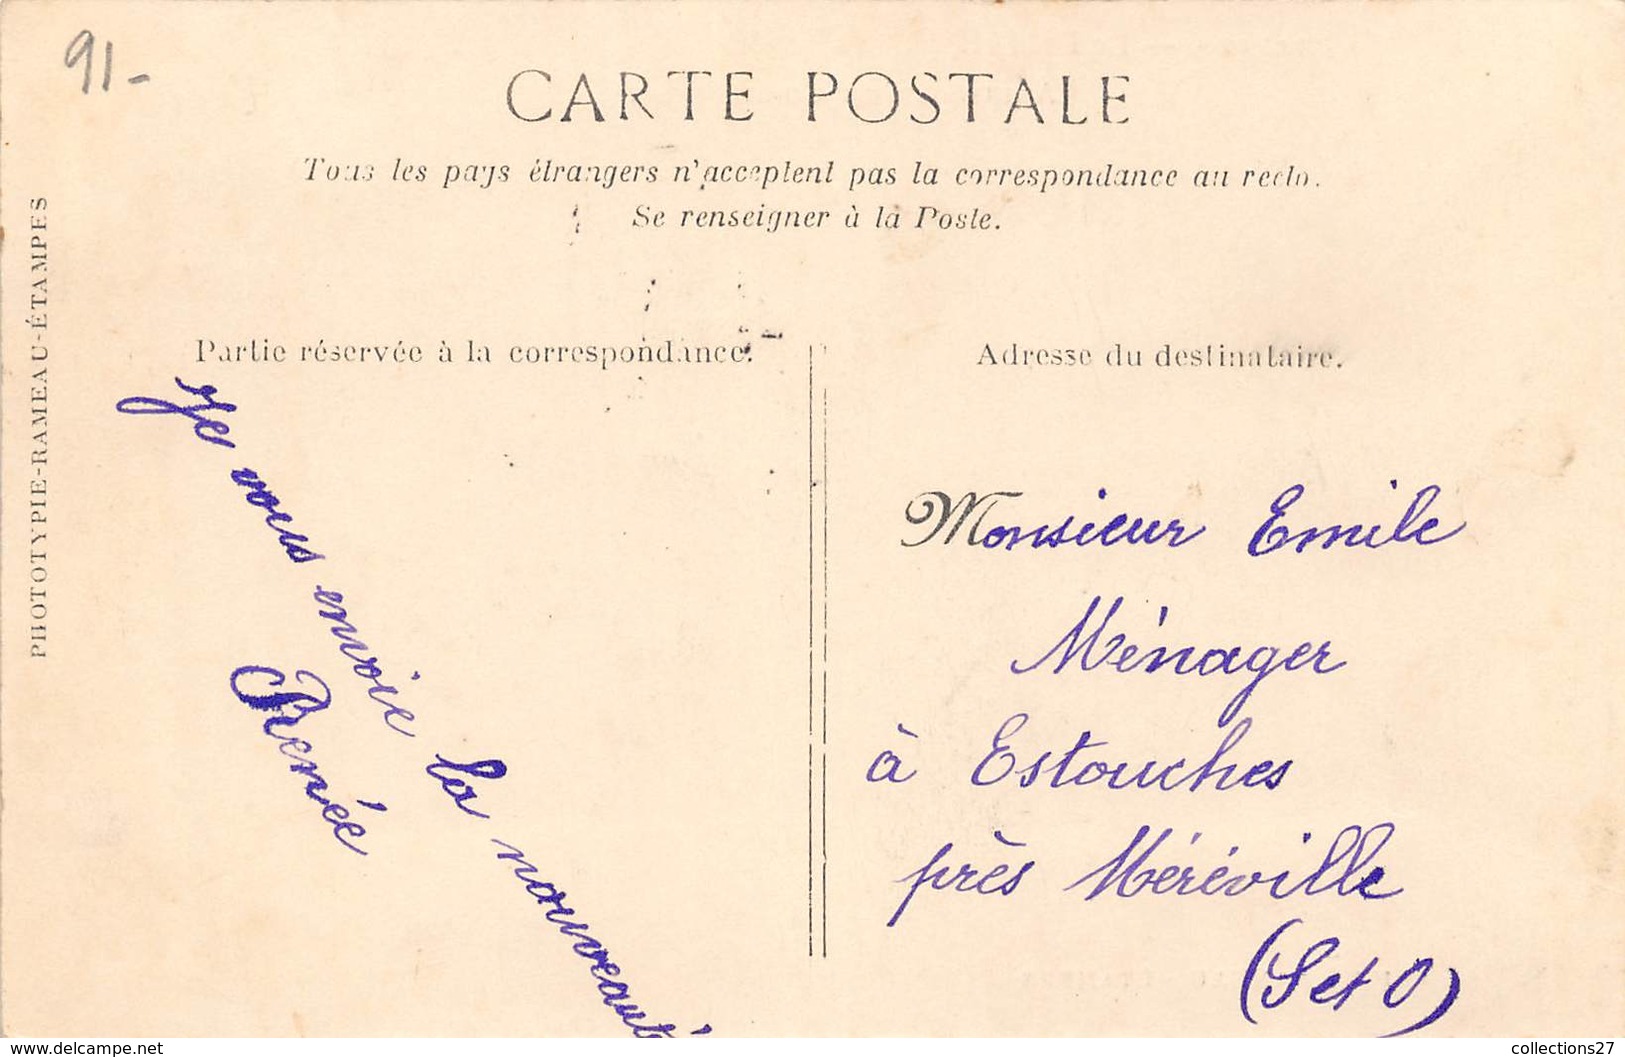 91-
CARTE POSTALE
Tous les pays étrangers n'acceptent pas la correspondance au recto.
Se renseigner à la Poste.
PHOTOTYPIE-RAMEAU-ÉTAMPES
Partie réservée à la correspondance.
Je vous envoie la nouveauté
Renée
Adresse du destinataire.
Monsieur Emile
Ménager
à Estouches
près Méréville
(S et O)
www.delcampe.net
collections27